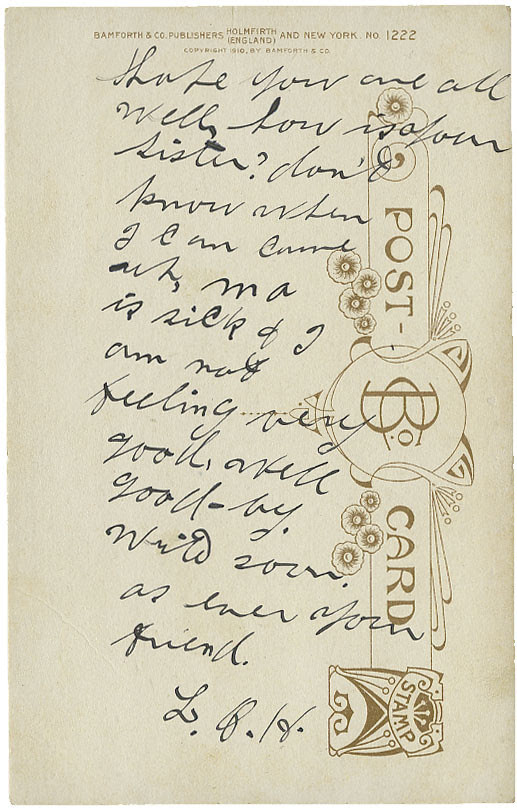 BAMFORTH & CO. PUBLISHERS HOLMFIRTH (ENGLAND) AND NEW YORK. No. 1222
COPYRIGHT 1910, BY BAMFORTH & CO.
I hope you are all
well, how is your
sister? don't
know when
I can come
out, ma
is sick & I
am not
feeling very
good, well
good-by.
Write soon.
as ever your
friend.
L. B. H.
POST-CARD
B Co
STAMP